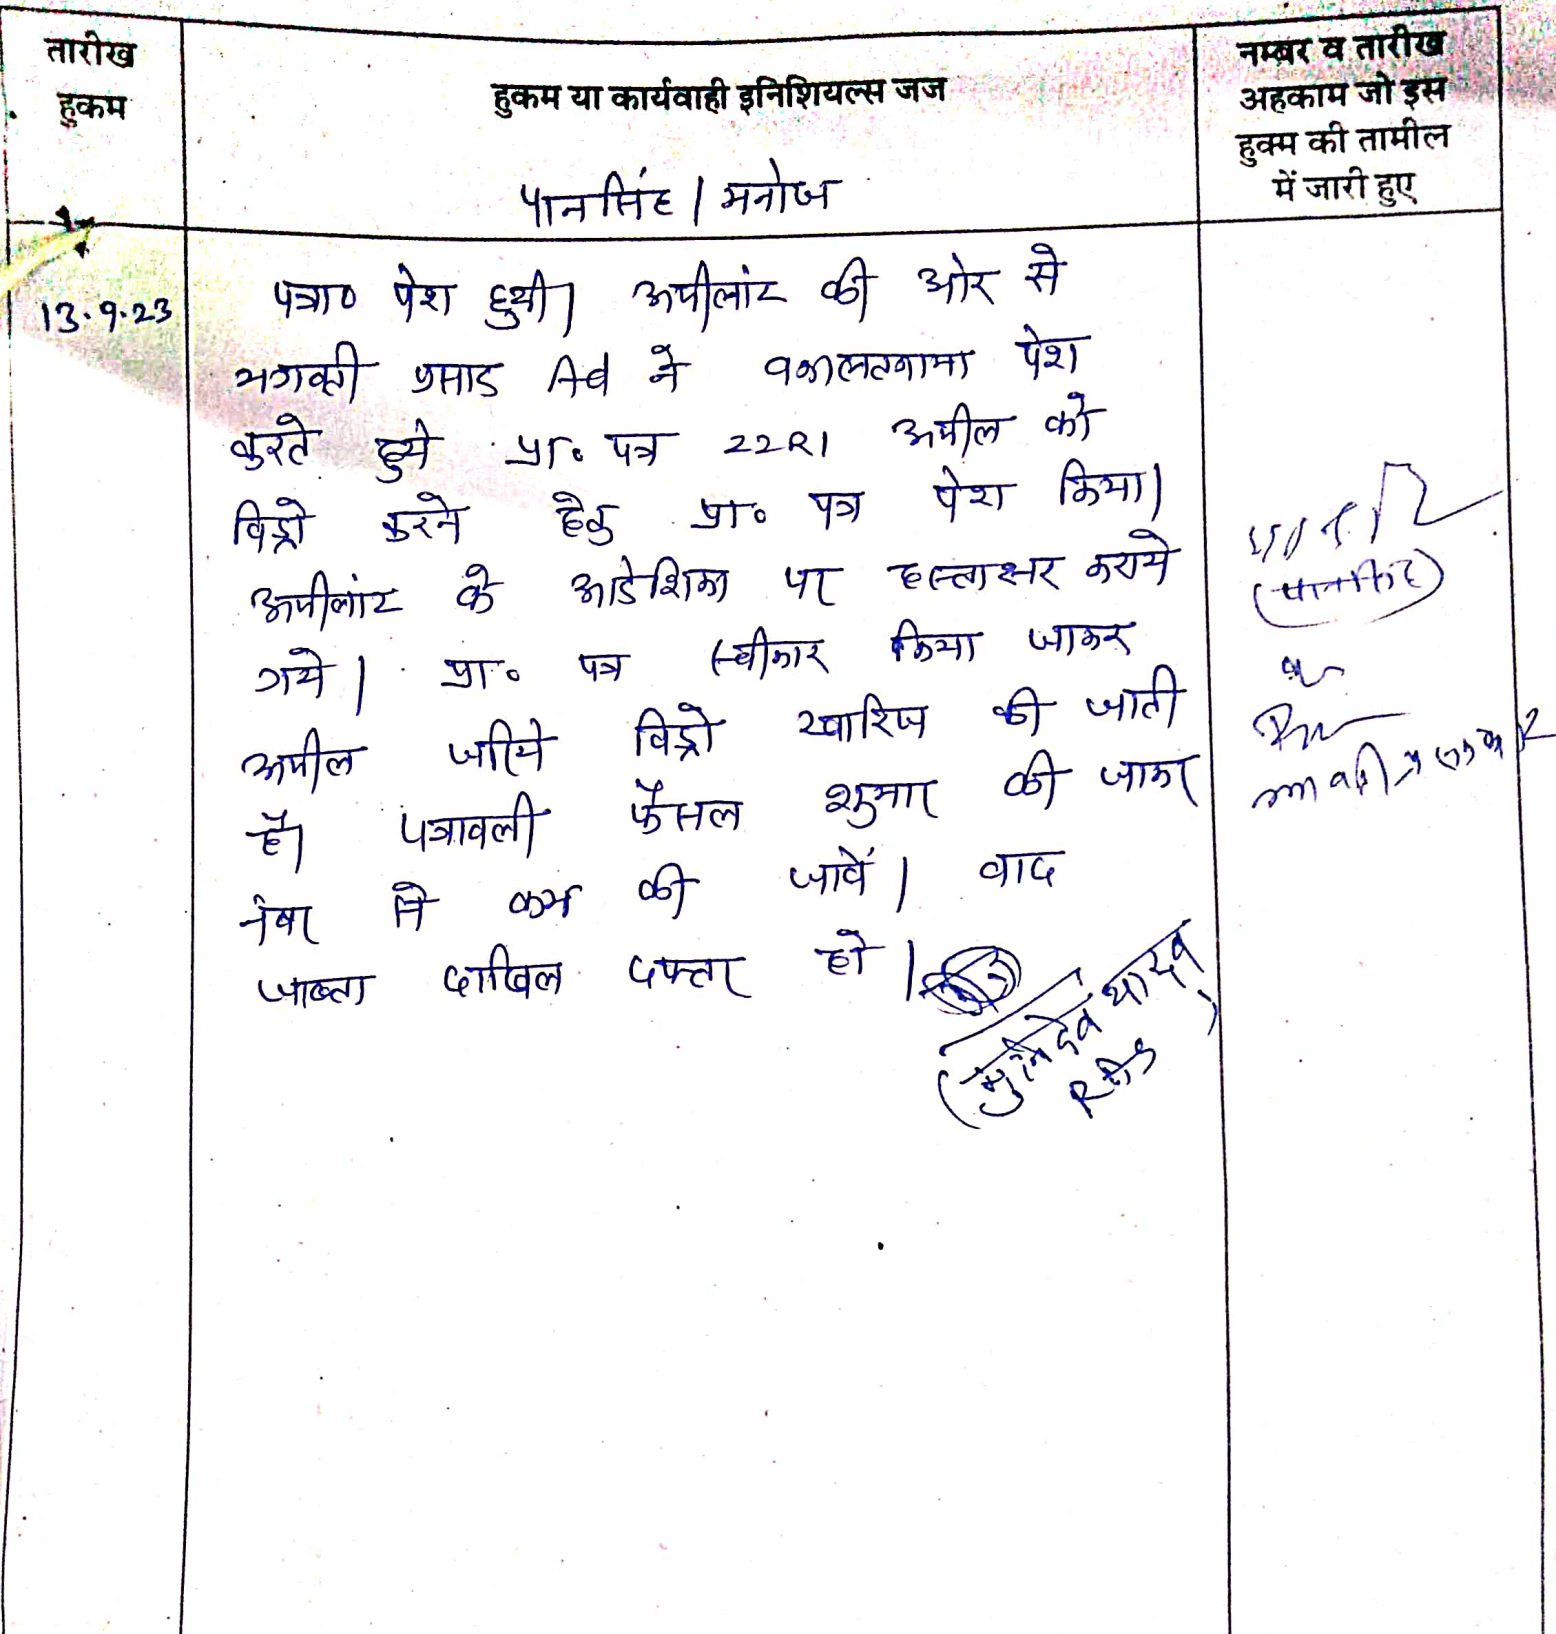 तारीख
हुकम
हुकम या कार्यवाही इनिशियल्स जज
नम्बर व तारीख
अहकाम जो इस
हुक्म की तामील
में जारी हुए
पानसिंह / मनोज
13.9.23
पत्रा० पेश हुयी। अपीलांट की ओर से
भगवती प्रसाद Ad ने वकालतनामा पेश
करते हुये प्रा० पत्र 22R1 अपील को
विड्रो करने हेतु प्रा० पत्र पेश किया।
अपीलांट के आदेशिका पर हस्ताक्षर कराये
गये। प्रा० पत्र स्वीकार किया जाकर
अपील जरिये विड्रो खारिज की जाती
है। पत्रावली फैसल शुमार की जाकर
नंबर से कम की जावें। वाद
जाब्ता दाखिल दफ्तर हो।
(मुनिदेव यादव)
(पानसिंह)